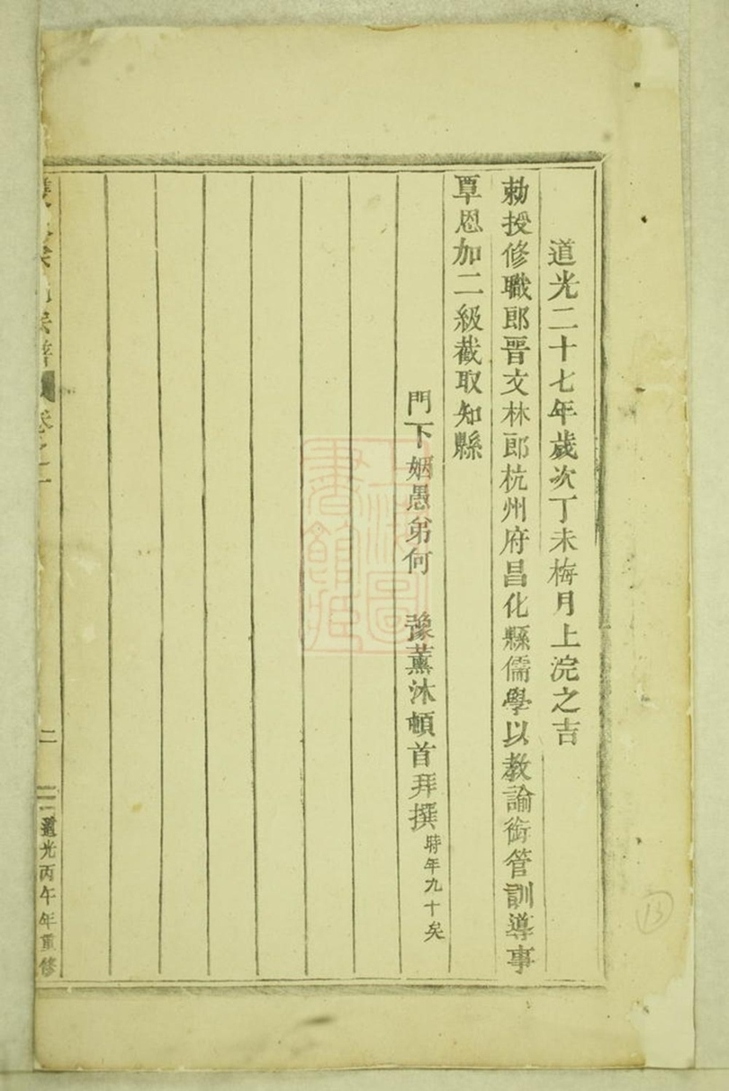 道光二十七年歲次丁未梅月上浣之吉
勅授修職郎晋文林郎杭州府昌化縣儒學以教諭銜管訓導事
覃恩加二級截取知縣
門下姻愚弟何 豫薰沐頓首拜撰時年九十矣
卷之一
二
道光丙午年重修
13